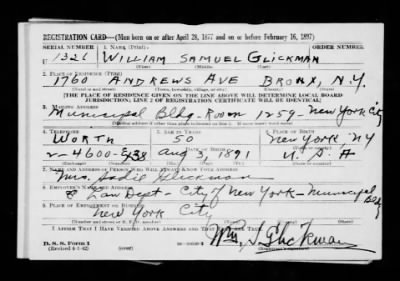 REGISTRATION CARD—(Men born on or after April 28, 1877 and on or before February 16, 1897)
SERIAL NUMBER 1. NAME (Print) ORDER NUMBER
U 1321 WILLIAM SAMUEL GLICKMAN
(First) (Middle) (Last)
2. PLACE OF RESIDENCE (Print)
1760 ANDREWS AVE BRONX, N.Y.
(Number and street) (Town, township, village, or city) (County) (State)
[THE PLACE OF RESIDENCE GIVEN ON THE LINE ABOVE WILL DETERMINE LOCAL BOARD
JURISDICTION; LINE 2 OF REGISTRATION CERTIFICATE WILL BE IDENTICAL]
3. MAILING ADDRESS
Municipal Bldg. Room 1259-New York City
4. TELEPHONE 5. AGE IN YEARS 6. PLACE OF BIRTH
WORTH 50 New York, NY
DATE OF BIRTH
2-4600- Aug 3, 1891 U.S.A
7. NAME AND ADDRESS OF PERSON WHO WILL ALWAYS KNOW YOUR ADDRESS
Mrs. Sadie Glickman
8. EMPLOYER'S NAME AND ADDRESS
Law Dept - City of New York - Municipal Bldg
9. PLACE OF EMPLOYMENT OR BUSINESS
New York City
I AFFIRM THAT I HAVE VERIFIED ABOVE ANSWERS AND THAT THEY ARE TRUE.
D. S. S. Form 1
(Revised 4-1-42) (over)
Wm. S. Glickman